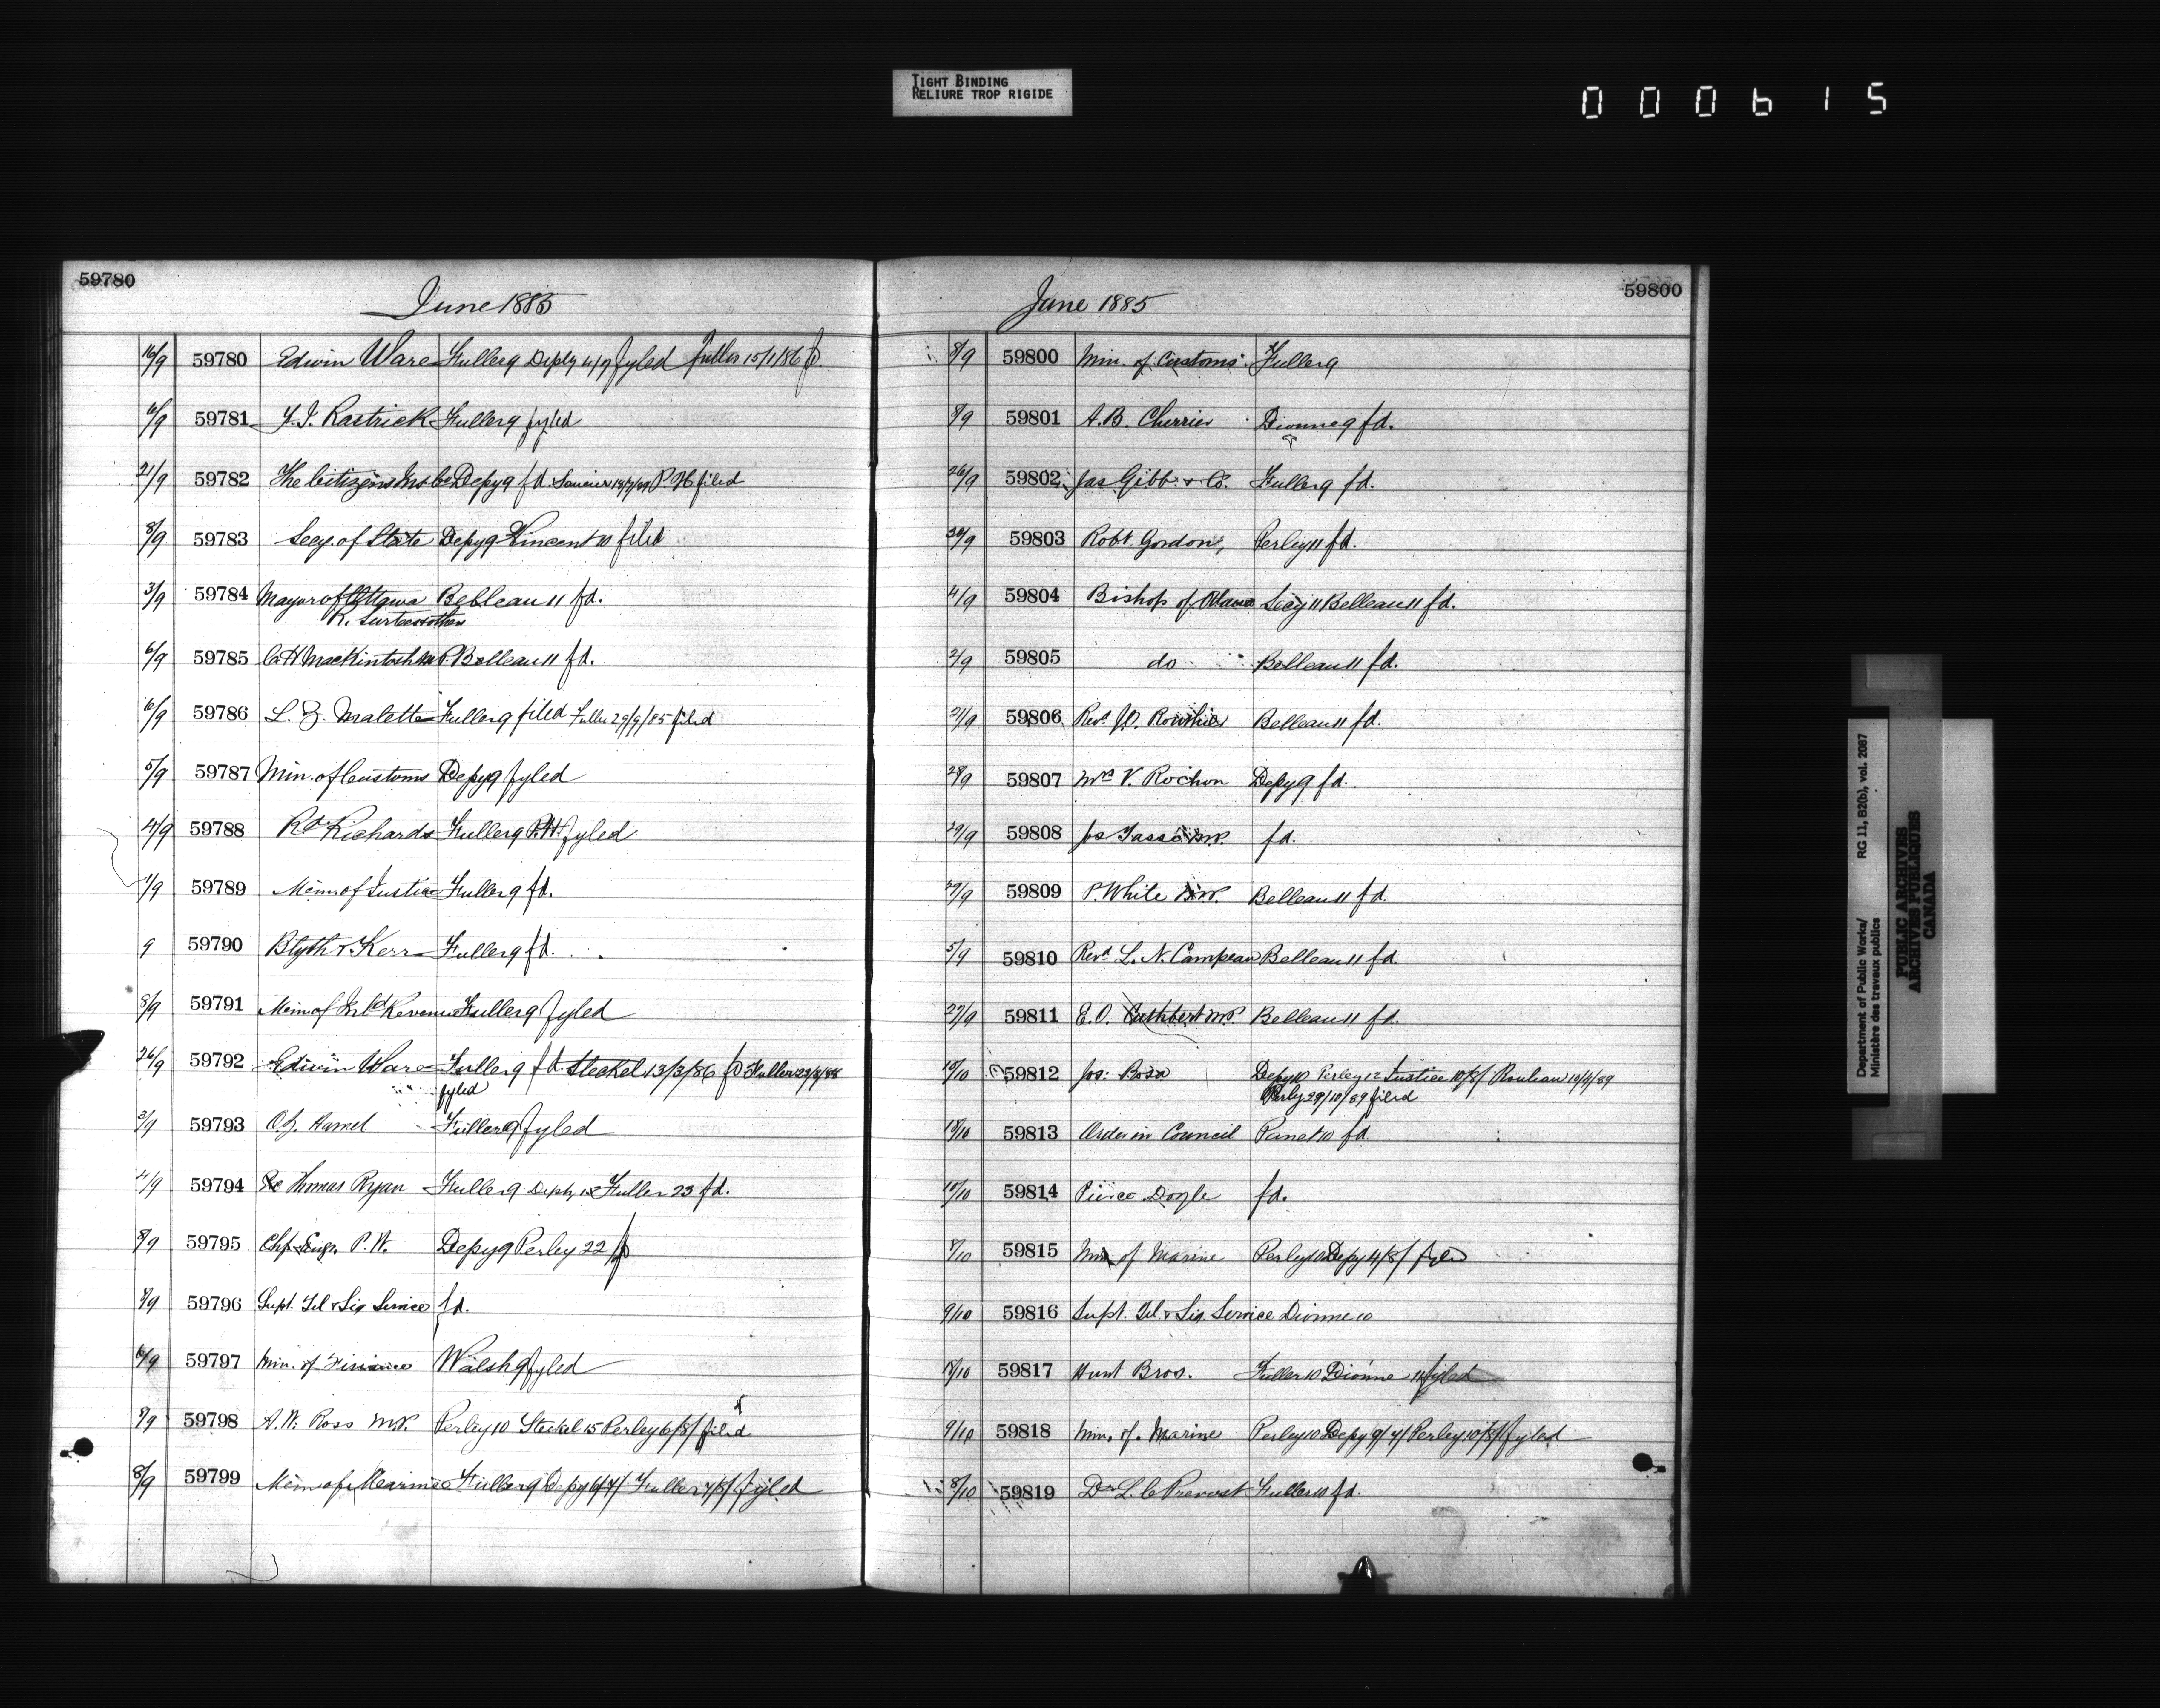 TIGHT BINDING
RELIURE TROP RIGIDE
000615
59780
June 1885
16/9 59780 Edwin Ware Fuller 9 Depty 11/9 fyled Fuller 15/1/86 fd.
6/9 59781 Rastrick Fuller 9 fyled
21/9 59782 The Citizens Ins Co Depy 9 fd. P. H filed
8/9 59783 Secy. of State Depy 9 Vincent 10 filed
3/9 59784 Mayor of Ottawa Belleau 11 fd.
R. Surtees & others
6/9 59785 C. H Mackintosh M.P. Belleau 11 fd.
6/9 59786 L. Z. Malette Fuller 9 filed Fuller 29/9/85 filed
5/9 59787 Min. of Customs Depy 9 fyled
4/9 59788 Rd Richards Fuller 9 P.H. fyled
1/9 59789 Min. of Justice Fuller 9 fd.
9 59790 Blyth & Kerr Fuller 9 fd.
8/9 59791 Min. of Inld Revenue Fuller 9 fyled
26/9 59792 Edwin Ware Fuller 9 fd Steckel 13/3/86 fd Fuller
fyled
2/9 59793 Hamel Fuller 9 fyled
59794 Thomas Ryan Fuller 9 Depty 12 Fuller 23 fd.
8/9 59795 Chf. Engr. P. W. Depy 9 Perley 22 fd
8/9 59796 Supt. Tel & Sig Service fd.
6/9 59797 Min. of Finance Walsh 9 fyled
8/9 59798 A. W. Ross M.P. Perley 10 Steckel 15 Perley 6/8/ filed
8/9 59799 Min. of Marine Fuller 9 Depy 6/7/ Fuller 7/8/ fyled
59800
June 1885
8/9 59800 Min. of Customs. Fuller 9
8/9 59801 A. B. Cherrier Dionne 9 fd.
26/9 59802 Jas Gibb & Co. Fuller 9 fd.
59803 Robt. Gordon, Perley 11 fd.
4/9 59804 Bishop of Ottawa Secy 11 Belleau 11 fd.
2/9 59805 do Belleau 11 fd.
59806 Revd. Belleau 11 fd.
28/9 59807 Mrs V. Rochon Depy 9 fd.
29/9 59808 Jos Tassé M.P. fd.
29/9 59809 P. White M.P. Belleau 11 fd.
5/9 59810 Revd. L. N. Campeau Belleau 11 fd.
27/9 59811 E. O. Cuthbert M.P. Belleau 11 fd.
10/10 59812 Jos: Depy 10 Perley 12 Justice 10/8/ Rouleau 10/9/89
Perley 29/10/89 filed
10/10 59813 Order in Council Panet 10 fd.
10/10 59814 Pierce Doyle fd.
8/10 59815 Min. of Marine Perley 10 Depy 4/8/ fyled
9/10 59816 Supt. Tel. & Sig. Service Dionne 10
8/10 59817 Hunt Bros. Fuller 10 Dionne 11 fyled
9/10 59818 Min. of. Marine Perley 10 Depy 9/7/ Perley 10/8/ fyled
8/10 59819 Dr L. C Prevost Fuller 10 fd.
Department of Public Works/ RG 11, B2(b), vol. 2087
Ministère des travaux publics
PUBLIC ARCHIVES
ARCHIVES PUBLIQUES
CANADA